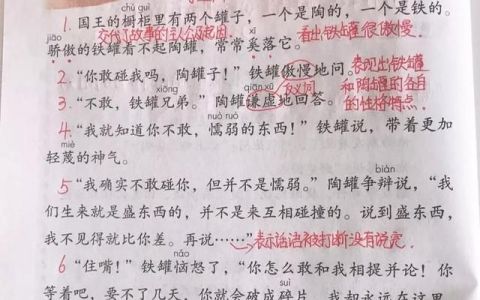 chú guì
1. 国王的橱柜里有两个罐子，一个是陶的，一个是铁的。
交代了故事的主人公及起因 看出铁罐很傲慢。
jiāo
骄傲的铁罐看不起陶罐，常常奚落它。
2. “你敢碰我吗，陶罐子！”铁罐傲慢地问。
表现出铁罐和陶罐的各自的性格特点。
反义词
xiōng qiān xū
3. “不敢，铁罐兄弟。”陶罐谦虚地回答。
nuò ruò
4. “我就知道你不敢，懦弱的东西！”铁罐说，带着更加
miè
轻蔑的神气。
biàn
5 “我确实不敢碰你，但并不是懦弱。”陶罐争辩说，“我
们生来就是盛东西的，并不是来互相碰撞的。说到盛东西，
我不见得就比你差。再说……” 表示话语被打断没有说完
nǎo
6 “住嘴！”铁罐恼怒了，“你怎么敢和我相提并论！你
suì
等着吧，要不了几天，你就会破成碎片，我却永远在这里